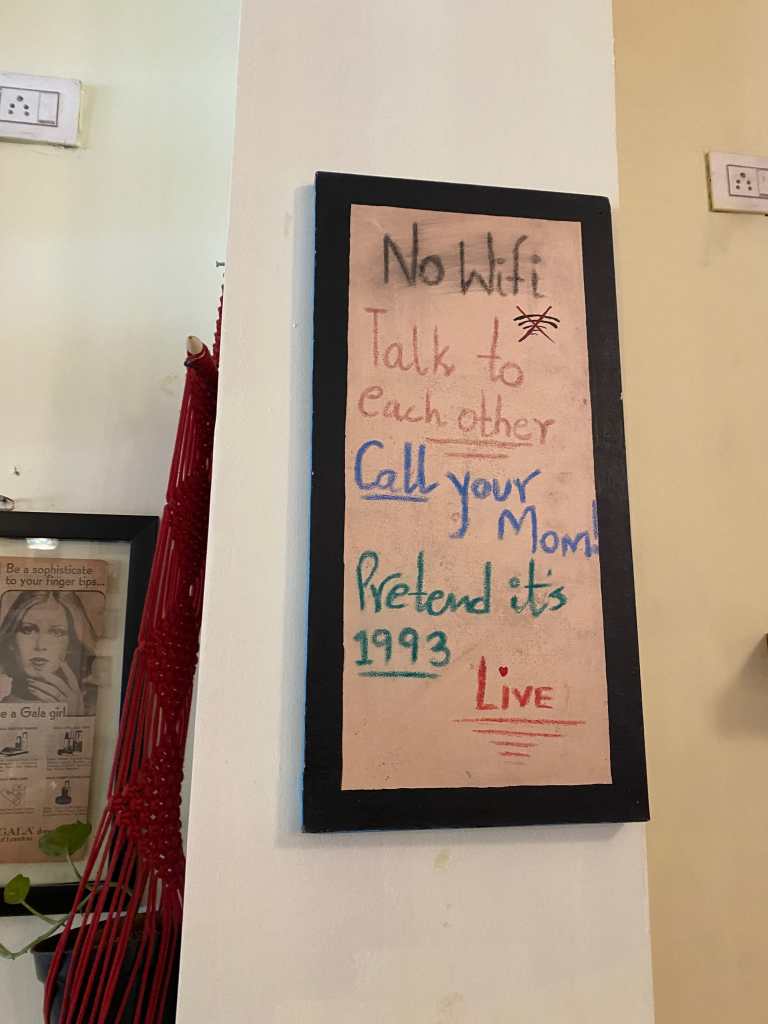 No Wifi
Talk to
each other
Call your
Mom!
Pretend it's
1993
LIVE
Be a sophisticate
to your finger tips...
e a Gala girl
GALA